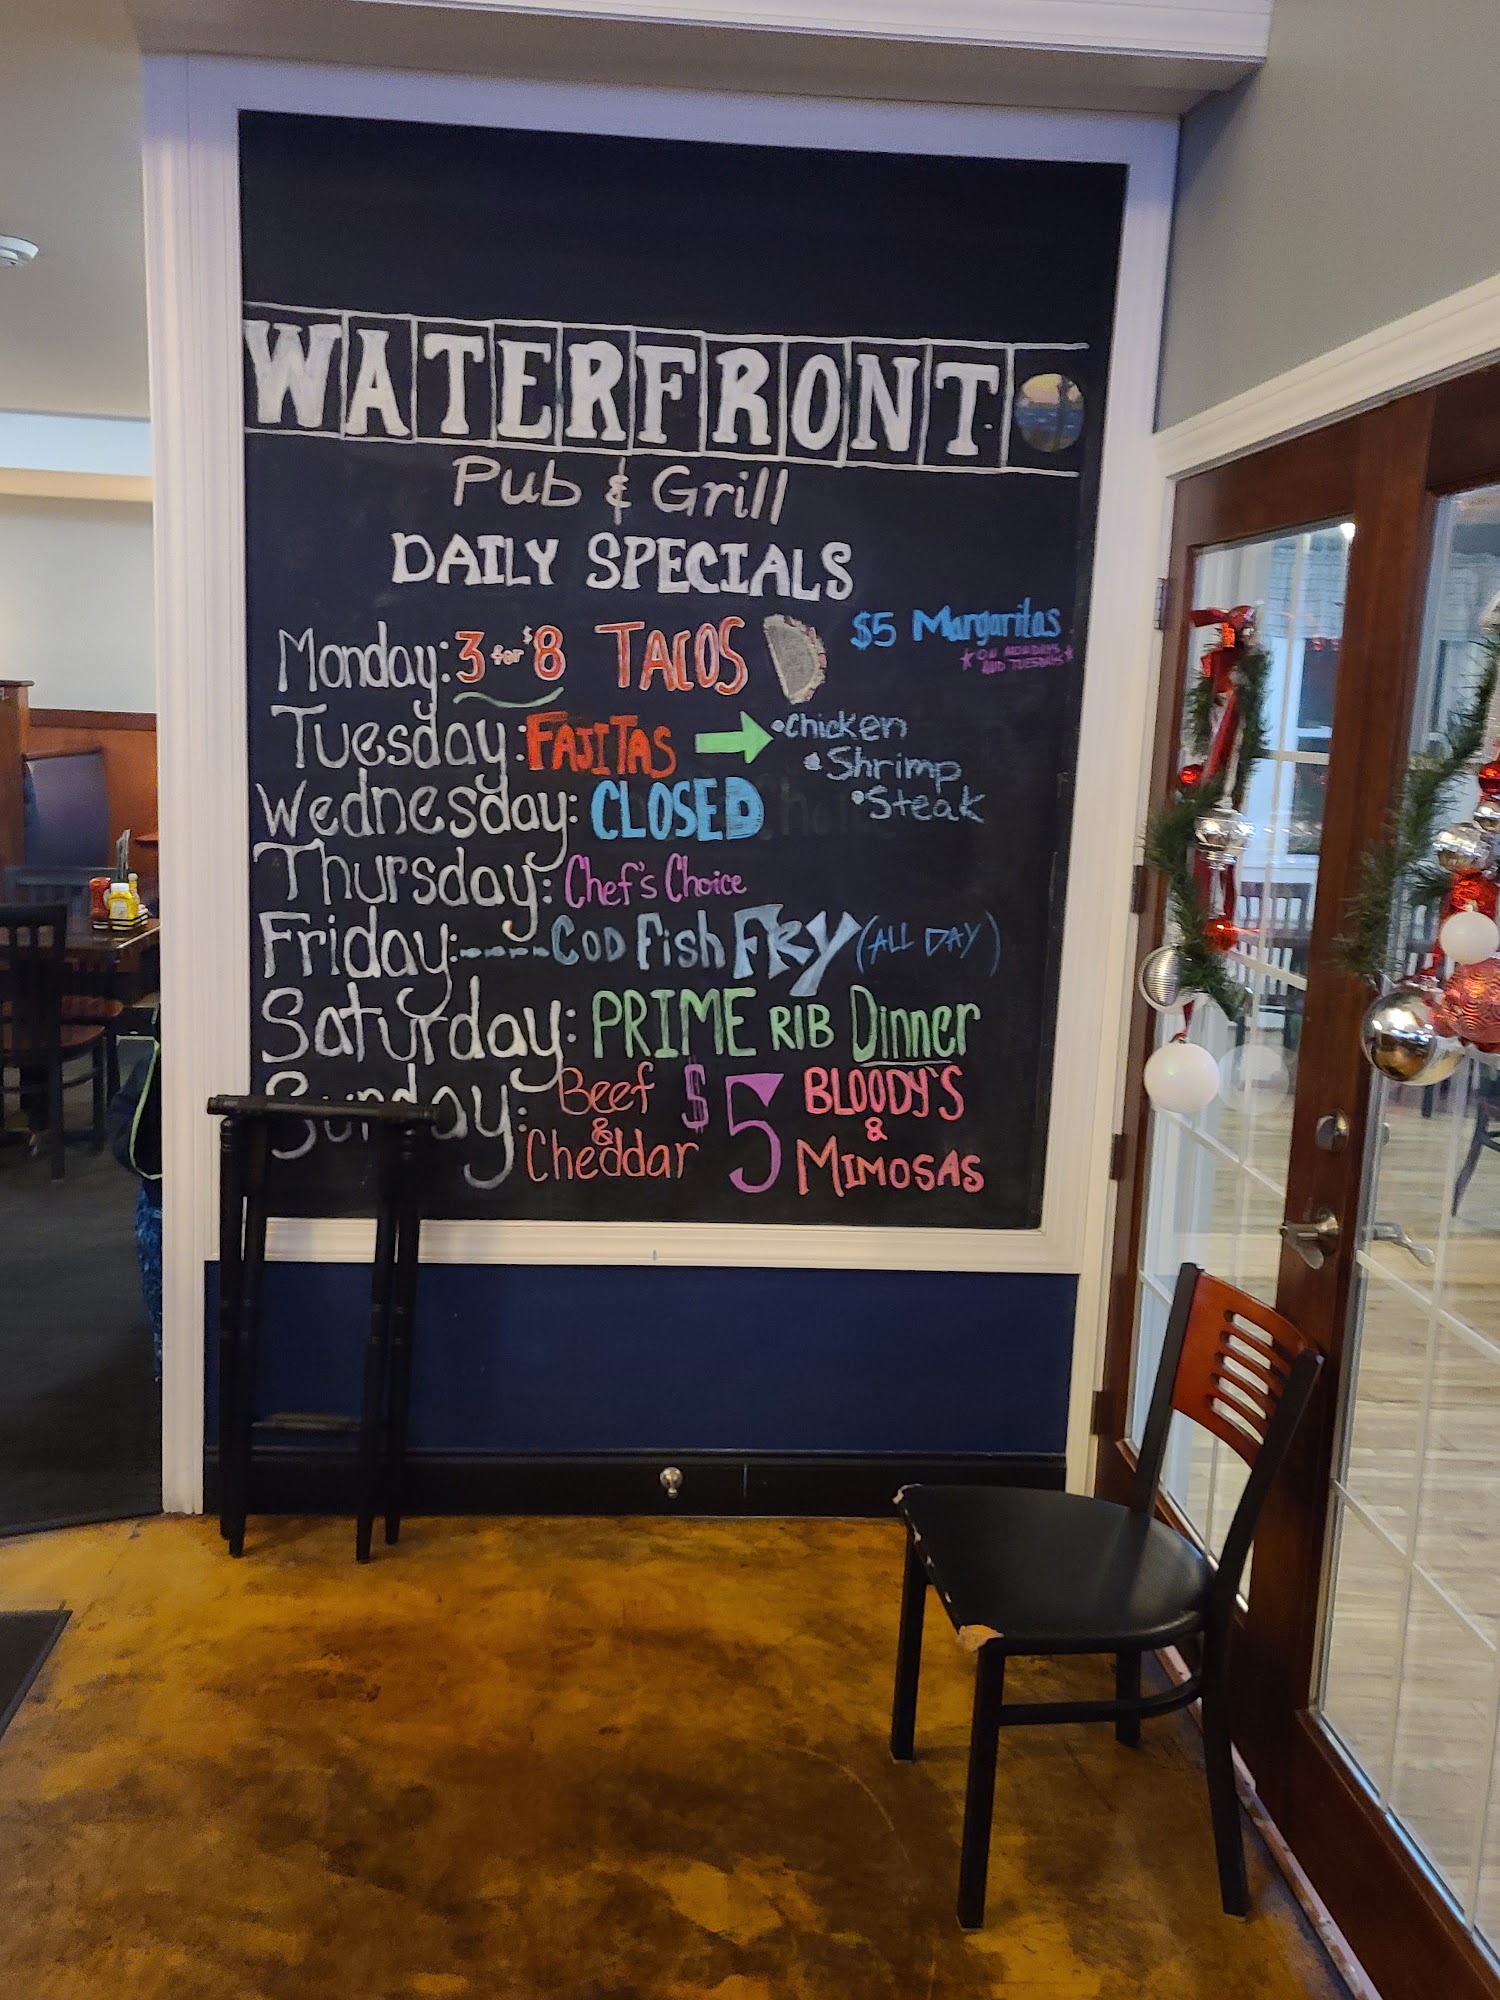 WATERFRONT
Pub & Grill
DAILY SPECIALS
Monday: 3 for $8 TACOS
$5 Margaritas
*ON MONDAYS
AND TUESDAYS*
Tuesday: FAJITAS
•Chicken
•Shrimp
•Steak
Wednesday: CLOSED
Thursday: Chef's Choice
Friday:----- COD Fish FRY (ALL DAY)
Saturday: PRIME RIB Dinner
Sunday: Beef & Cheddar
$5 BLOODY'S
&
MIMOSAS